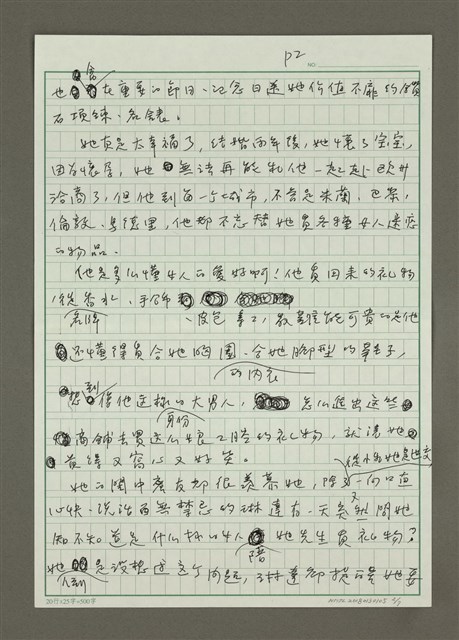 P2
NO.
也會在重要的節日、紀念日送她價值不菲的鑽
石項鍊、名錶。
她真是太幸福了，結婚兩年後，她懷了宝宝，
因為懷孕，她無法再能和他一起赴歐州
洽商了，但他到每一个城市，不管是米蘭、巴黎，
倫敦、馬德里，他都不忘替她買各種女人迷戀
的物品。
他是多么懂女人的愛好啊！他買回來的礼物
從香水、手飾
名牌 、皮包 ，最難能可貴的是他
還懂得買合她胸圍、合她腳型的鞋子，
的內衣
想到像他這樣的大男人， 怎么進出這些
身份
商鋪去買這么 的礼物，就讓她
覺得又窩心又好笑。
她的閨中蜜友都很羨慕她，除了一向口直
心快、說話百無禁忌的琳達有一天突然問她
知不知道是什么样的女人陪她先生買礼物？
她 是沒想過這个問題，琳達卻提醒她要
20行×25字=500字